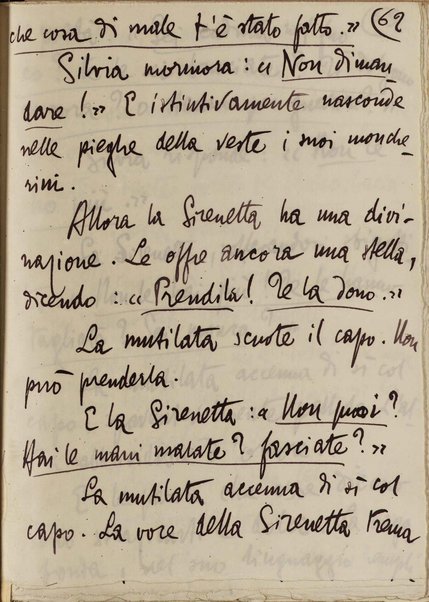 che cosa di male t'è stato fatto.» 62
Silvia mormora: « Non diman-
dare!» E istintivamente nasconde
nelle pieghe della veste i suoi monche-
rini.
Allora la Sirenetta ha una divi-
nazione. Le offre ancora una stella,
dicendo: « Prendila! Te la dono.»
La mutilata scuote il capo. Non
può prenderla.
E la Sirenetta: « Non puoi?
Hai le mani malate? fasciate?»
La mutilata accenna di sì col
capo. La voce della Sirenetta trema